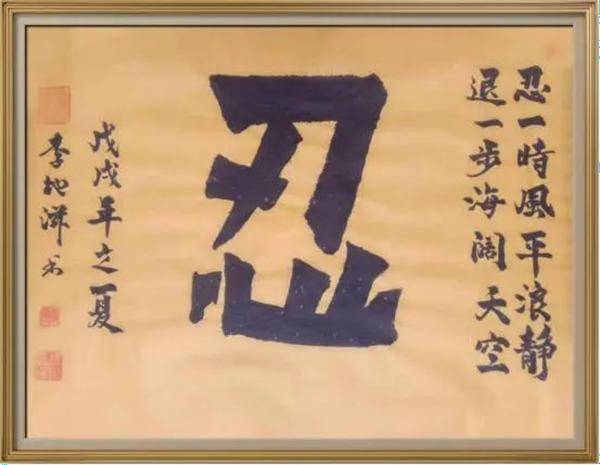 忍一時風平浪静
退一步海阔天空
忍
戊戌年之夏
李地洋书